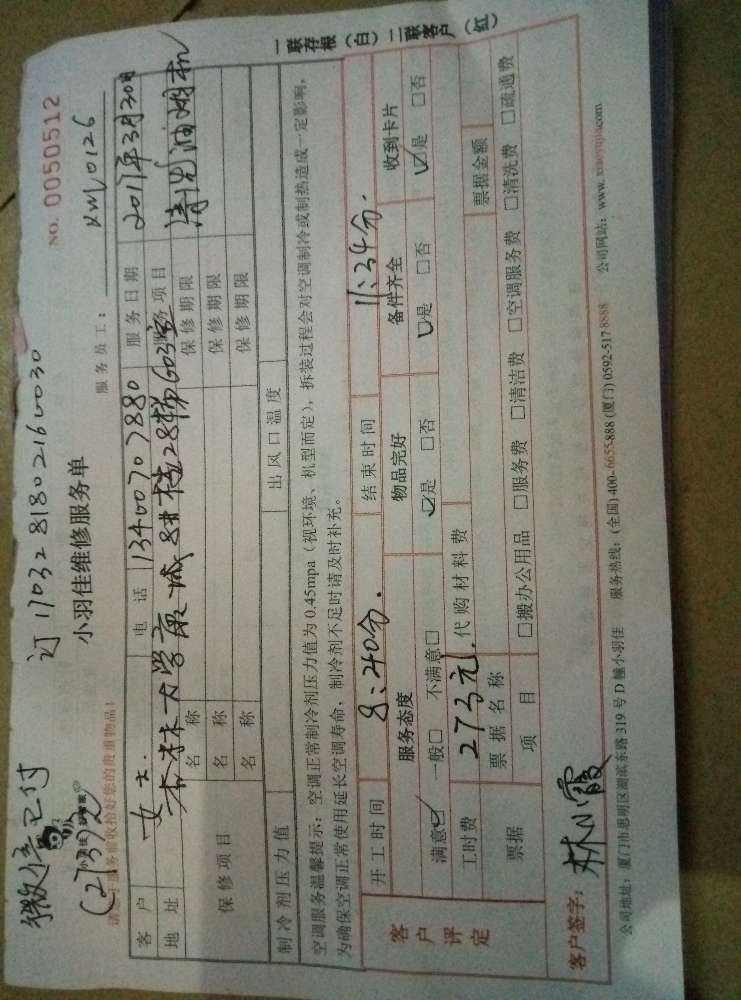 微信已付
(273元)
订 17032818021 60030
小羽佳维修服务单
NO. 0050512
服务员工: XWL0126
请在服务前收拾好您的贵重物品!
客户 女士. 电话 13400707880 服务日期 2017年3月30日
地址 8#楼28梯603室 项目 清洗油烟机
保修项目 名称 保修期限
名称 保修期限
名称 保修期限
制冷剂压力值 出风口温度
空调服务温馨提示: 空调正常制冷剂压力值为0.45mpa (视环境、机型而定), 拆装过程会对空调制冷或制热造成一定影响,
为确保空调正常使用延长空调寿命, 制冷剂不足时请及时补充。
客户评定
开工时间 8:40分. 结束时间 11:34分.
服务态度 物品完好 备件齐全 收到卡片
满意☑ 一般□ 不满意□ ☑是 □否 ☑是 □否 ☑是 □否
工时费 273元. 代购材料费
票据 票据名称 票据金额
项目 □搬办公用品 □服务费 □清洁费 □空调服务费 □清洗费 □疏通费
客户签字: 林小霞
公司地址: 厦门市思明区湖滨东路319号D幢小羽佳 服务热线: (全国) 400-6655-888 (厦门) 0592-517 8888 公司网站: www.xiaoyujia.com
一联存根 (白) 二联客户 (红)